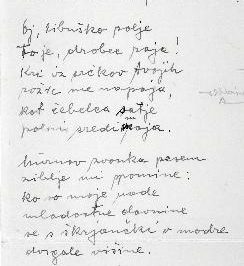 Oj, Libuško polje
to je, drobec raja!
Kri iz srčkov tvojih
rože me napaja,
kot čebelca satje
polni sredi maja.
murnov zvonka pesem
ziblje mi spomine:
ko so moje nade
mladostne davnine
se s škrjančki v modre
dvigale višine.